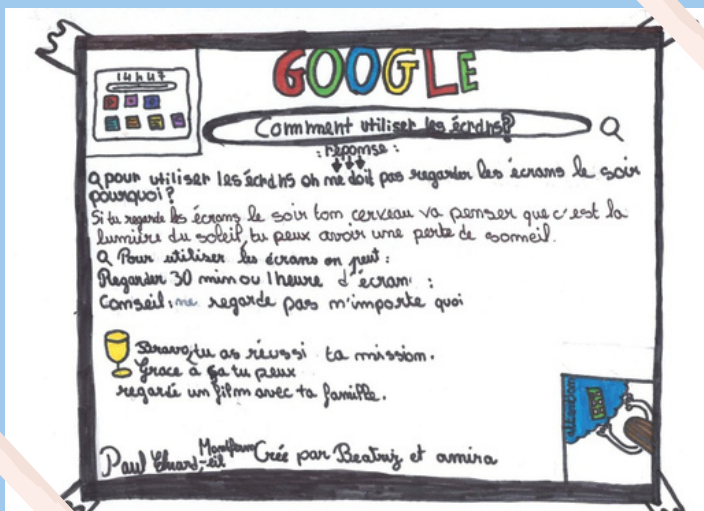 14h47
GOOGLE
Comment utiliser les écrans?
: réponse :
Q pour utiliser les écrans on ne doit pas regarder les écrans le soir
pourquoi?
Si tu regarde les écrans le soir ton cerveau va penser que c'est la
lumière du soleil, tu peux avoir une perte de someil.
Q Pour utiliser les écrans on peut :
Regarder 30 min ou 1 heure d'écran :
Conseil : ne regarde pas n'importe quoi
Bravo, tu as réussi ta mission.
Grace à ça tu peux
regardé un film avec ta famille.
attention
Paul Eluard, Crée par Beatriz et amira